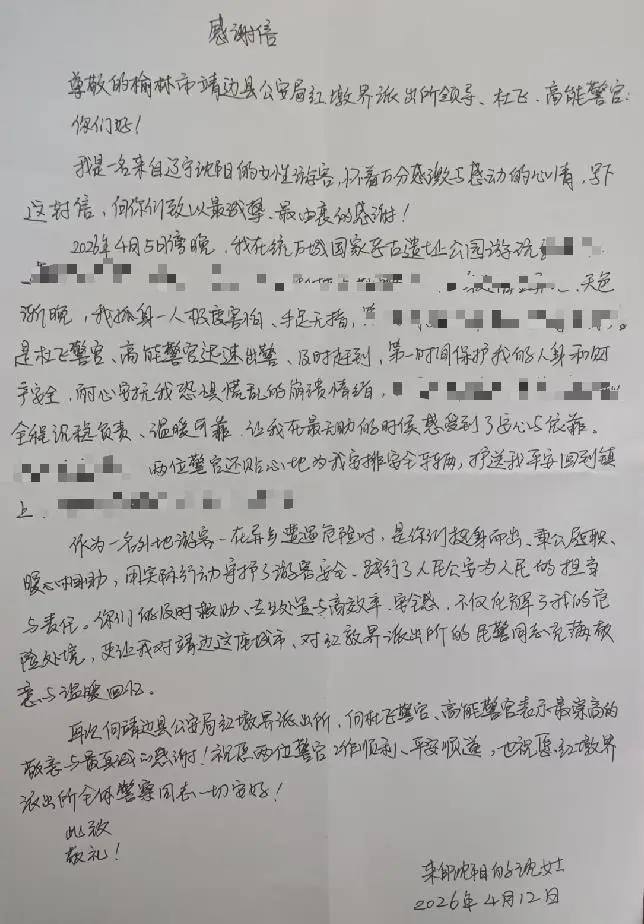 感谢信
尊敬的榆林市靖边县公安局红墩界派出所领导、杜飞、高能警官:
你们好!
我是一名来自辽宁沈阳的女性游客,怀着万分感激与感动的心情,写下
这封信,向你们致以最诚挚、最由衷的感谢!
2026年4月5日傍晚,我在统万城国家考古遗址公园游玩
天色
渐晚,我孤身一人极度害怕、手足无措,
是杜飞警官、高能警官迅速出警、及时赶到,第一时间保护我的人身和财
产安全,耐心安抚我恐惧慌乱的崩溃情绪,
全程沉稳负责、温暖可靠,让我在最无助的时候感受到了安心与依靠。
两位警官还贴心地为我安排安全车辆,护送我平安回到镇
上.
作为一名外地游客,在异乡遭遇危险时,是你们挺身而出、秉公履职、
暖心相助,用实际行动守护了游客安全、践行了人民公安为人民的担当
与责任。你们的及时救助、专业处置与高效率、安全感,不仅化解了我的危
险处境,更让我对靖边这座城市、对红墩界派出所的民警同志充满敬
意与温暖回忆。
再次向靖边县公安局红墩界派出所,向杜飞警官、高能警官表示最崇高的
敬意与最真诚的感谢!祝愿两位警官工作顺利、平安顺遂,也祝愿红墩界
派出所全体警察同志一切安好!
此致
敬礼!
来自沈阳的沈女士
2026年4月12日